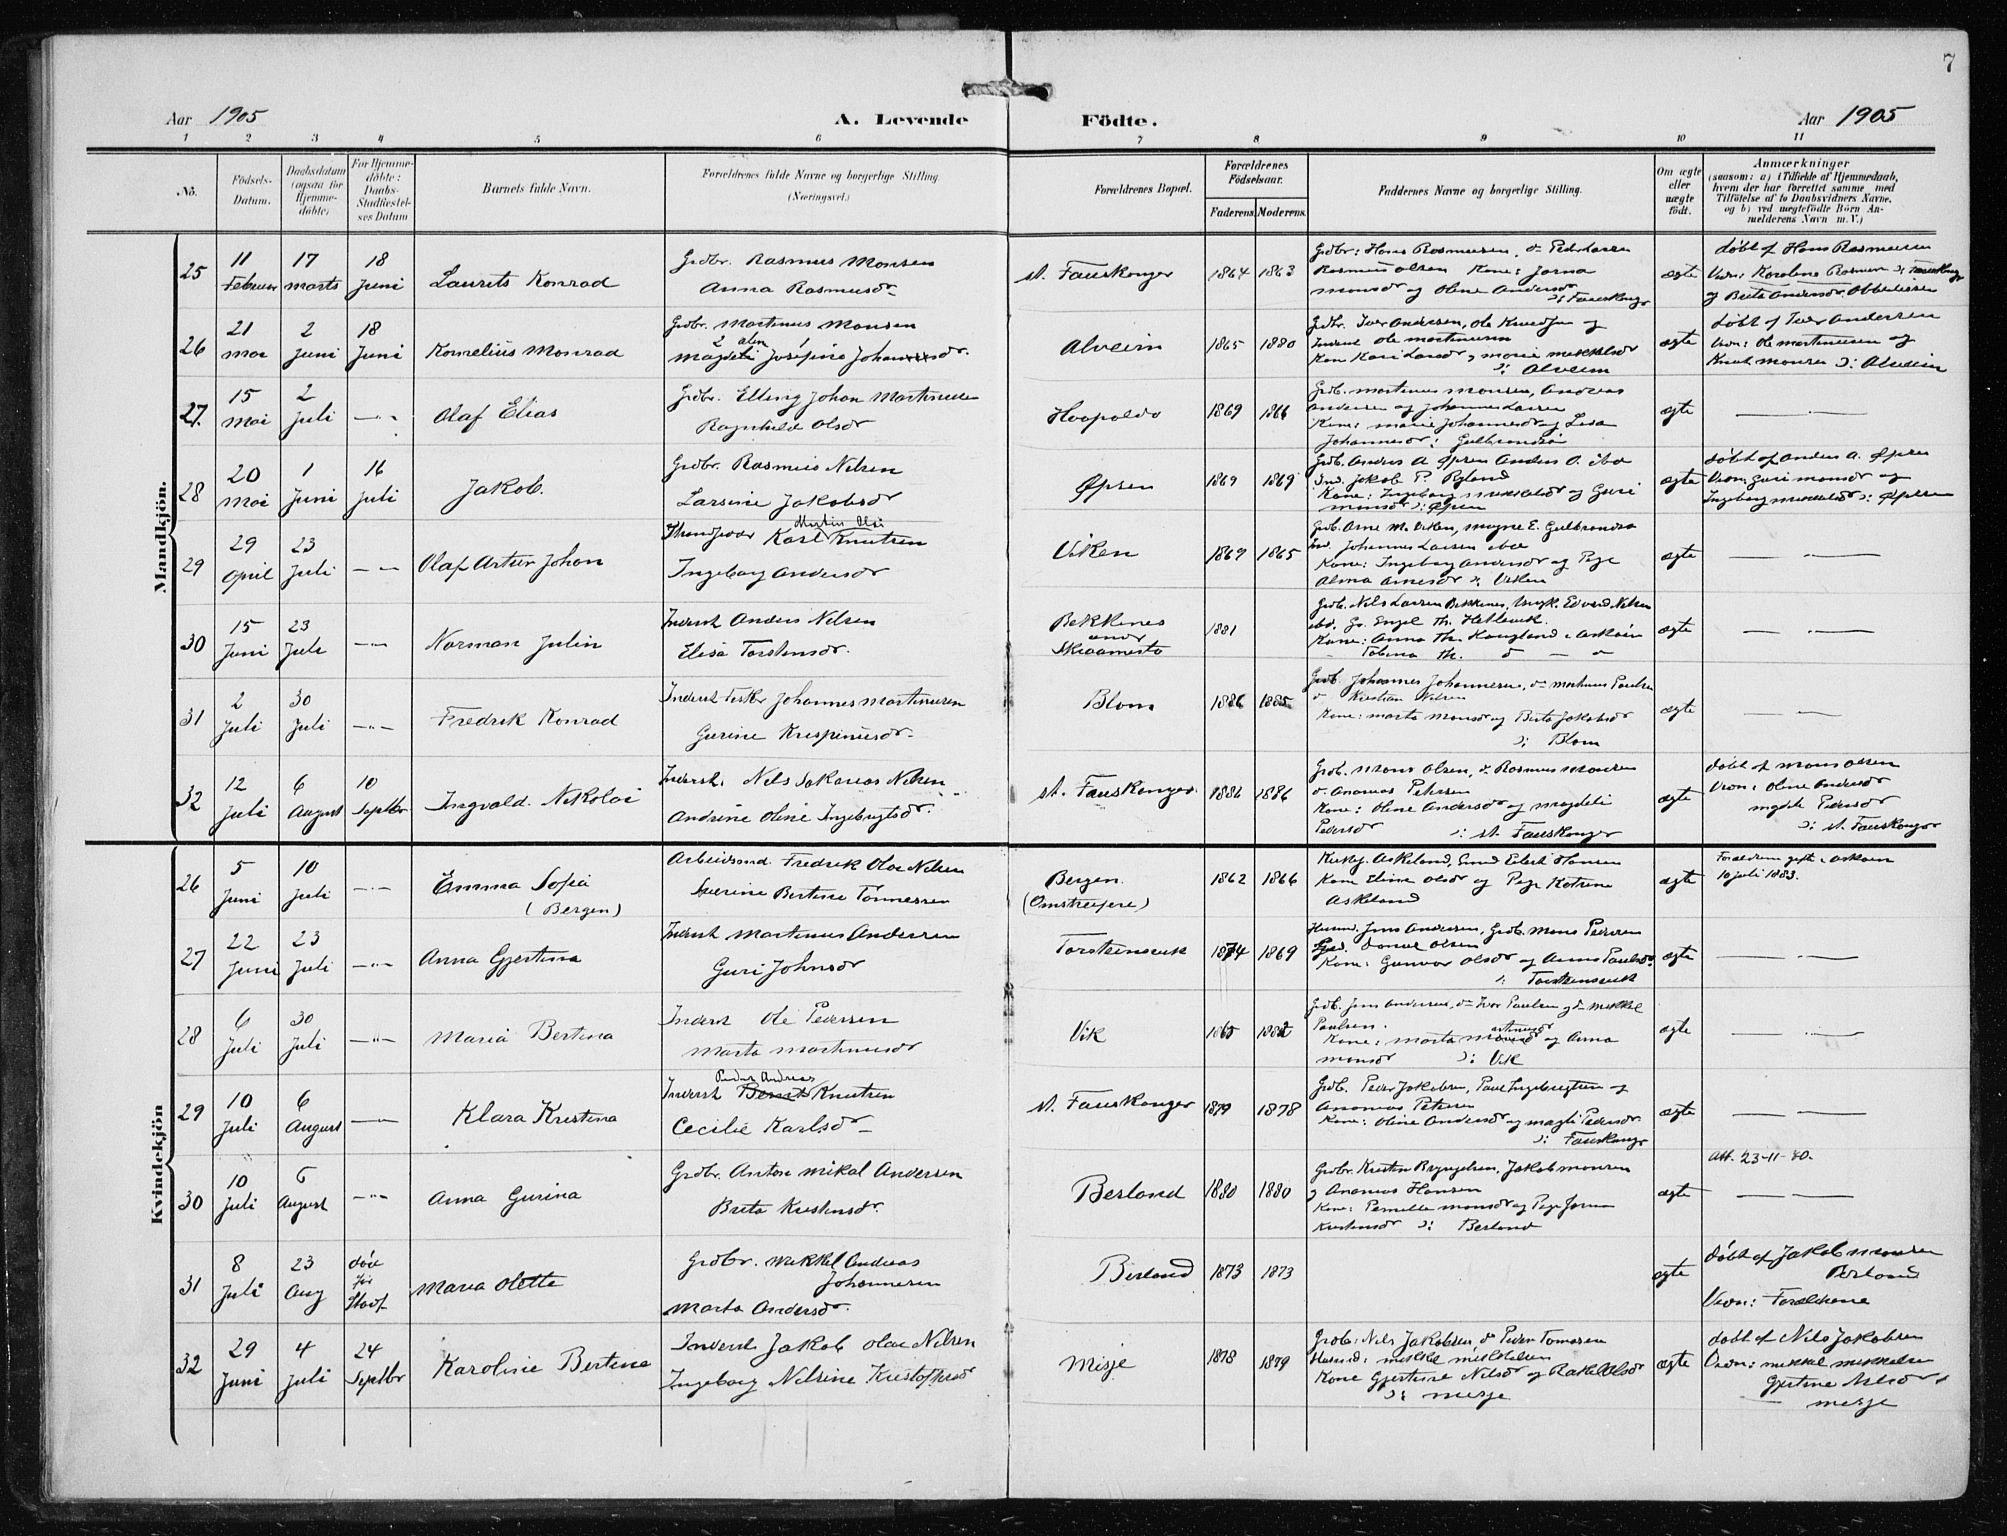 7
Aar 1905
A. Levende
Födte.
Aar 1905
1 2 3 4 5 6 7 8 9 10 11
No.
Födsels-Datum.
Daabsdatum (ogsaa for Hjemmedöbte)
For Hjemmedöbte: Daabs-Stadfæstelses Datum
Barnets fulde Navn.
Forældrenes fulde Navne og borgerlige Stilling. (Næringsvei.)
Forældrenes Bopæl.
Forældrenes Födselsaar.
Faderens Moderens
Faddernes Navne og borgerlige Stilling.
Om ægte eller uægte födt.
Anmærkninger
(saasom: a) i Tilfælde af Hjemmedaab,
hvem der har forrettet samme med
Tilföielse af to Daabsvidners Navne,
og b) ved uægtefödte Börn Anmelderens Navn m. V.)
Mandkjön.
25
11 Februar
17 marts
18 Juni
Laurits Konrad
Grdbr. Rasmus Monsen
Anna Rasmusdr
st. Fauskanger
1864 1863
Grdbr: Hans Rasmussen, do Peder Larsen
Rasmus Olsen Kone: Jorna
Monsdr og Oline Andersdr
ɔ: Fauskanger
ægte
døbt af Hans Rasmussen
Vidn: Karoline Rasmus ɔ: Fauskanger
og Berta Andersdr
26
21 mai
2 Juni
18 Juni
Kornelius Monrad
Grdbr. Martinus Monsen
Magdeli Josefine Johannesdr.
Alveim
1865 1880
Grdbr. Iver Andersen, Ole Knudsen og
Inderst Ole Martinussen
Kone Kari Larsdr, Marie Mikkelsdr
ɔ: Alveim
ægte
døbt af Iver Andersen
Vidn: Ole Martinussen og
Knut Monsen ɔ: Alveim
27.
15 mai
2 Juli
—"—
Olaf Elias
Grdbr. Elling Johan Martinussen
Ragnhild Olsdr
Hopoldo
1869 1866
Grdb. Martinus Monsen, Andreas
Andersen og Johannes Larsen
Kone: Marie Johannesdr og Lisa
Johannesdr: Gulbrandsøi
ægte
28
20 mai
1 Juni
16 Juli
Jakob.
Grdbr. Rasmus Nilsen
Larsine Jakobsdr
Øpsen
1869 1869
Grdb. Anders A. Øpsen Anders O. ibd
Ind. Jakob P. Ryland
Kone: Ingeborg Mikkelsdr og Guri
Monsdr ɔ: Øpsen
ægte
døbt af Anders A. Øpsen
Vidn: Guri Monsdr og
Ingeborg Mikkelsdr ɔ: Øpsen
29
29 April
23 Juli
—"—
Olaf Artur Johan
Martin Olai
Strandsidder Karl Knutsen
Ingeborg Andersdr
Viken
1869 1865
Grdb. Arne M. Viken, Magne E. Gulbrandsø
Ind. Johannes Larsen ibd
Kone: Ingeborg Andersdr og Pige
Alma Arnesdr ɔ: Viken
ægte
30
15 Juni
23 Juli
—"—
Norman Julin
Inderst Anders Nilsen
Elisa Torstensdr.
Bekkenes
Skraamestø
1881
Grdb. Nils Larsen Bekkenes, Ungk. Edvard Nilsen
ibd. Gr. Engel Th. Hetlevik.
Kone: Anna Th. Haugland i Askøen
Tobina Th. do — do
ægte
31
2 Juli
30 Juli
—"—
Fredrik Konrad
Inderst Fisker Johannes Martinussen
Gurine Krispinusdr
Blom
1886 1885
Grdb. Johannes Johannesen, do Mathias Paulsen
do Kristian Nilsen
Kone: Marta Monsdr og Berta Jakobsdr
ɔ: Blom
ægte
32
12 Juli
6 August
10 Septbr
Ingvald Nikolai
Inderst. Nils Sakarias Nilsen
Andrine Oline Ingebrigtsdr.
st. Fauskanger
1886 1886
Grdb. Mons Olsen, do Rasmus Monsen
do Ananias Petersen
Kone: Oline Andersdr og Magdeli
Pedersdr ɔ: st. Fauskanger
ægte
døbt af Mons Olsen
Vidn: Oline Andersdr
Magdeli Pedersdr
ɔ: st. Fauskanger
Kvindekjön
26
5 Juni
10 Juli
—"—
Emma Sofia
(Bergen)
Arbeidsmd Fredrik Olai Nilsen
Severine Bertine Tønnessen
Bergen
(Omstreifere)
1862 1866
Kirkesg. Askeland, Smed Eilert Hansen
Kone Eline Olsdr og Pige Katrine
Askeland
ægte
Forældrene gifte i Askøen
10 juli 1883.
27
22 Juni
23 Juli
—"—
Anna Gjertina
Inderst Martinus Andersen
Guri Johnsdr
Torsteinsvik
1874 1869
Husmd. Jens Andersen, Grdb. Mons Pedersen
Daniel Olsen
Kone: Gunvor Olsdr og Anna Paulsdr
ɔ: Torsteinsvik
ægte
28
6 Juli
30 Juli
—"—
Maria Bertina
Inderst Ole Pedersen
Marta Martinusdr
Vik
1865 1882
Grdb. Jens Andersen, do Iver Paulsen og do Mikkel
Paulsen.
Kone: Marta og Anna
Monsdr ɔ: Vik
ægte
29
10 Juli
6 August
—"—
Klara Kristina
Peder Andreas
Inderst Bernt Knutsen
Cecilie Karlsdr
st. Fauskanger
1879 1878
Grdb. Peder Jakobsen, Paul Ingebrigtsen og
Ananias Petersen
Kone: Oline Andersdr og Magli Pedersdr
ɔ: Fauskanger
ægte
30
10 Juli
6 August
—"—
Anna Gurina
Grdbr. Anton Mikal Andersen
Brita Kristensdr.
Berland
1880 1880
Grdbr. Kristen Bryngelsen, Jakob Monsen
og Ananias Hansen
Kone: Pernille Monsdr og Pige Jorna
Kristensdr ɔ: Berland
ægte
Att. 23-11-40.
31
8 Juli
23 Aug
død før Stadf.
Maria Olette
Grdbr. Mikkel Andreas
Johannesen
Marta Andersdr.
Berland
1873 1873
ægte
døbt af Jakob Monsen
Berland
Vidn: Forældrene
32
29 Juni
4 Juli
24 Septbr
Karoline Bertina
Inderst Jakob Olai Nilsen
Ingeborg Nilsine Kristofersdr
Misje
1878 1879
Grdb: Nils Jakobsen, do Peder Tomasen
Husmd: Mikkel Mikkelsen
Kone Gjertine Nilsdr og Rakel Olsdr
ɔ: Misje
ægte
døbt af Nils Jakobsen
Vidn: Mikkel Mikkelsen
Gjertine Nilsdr
Misje